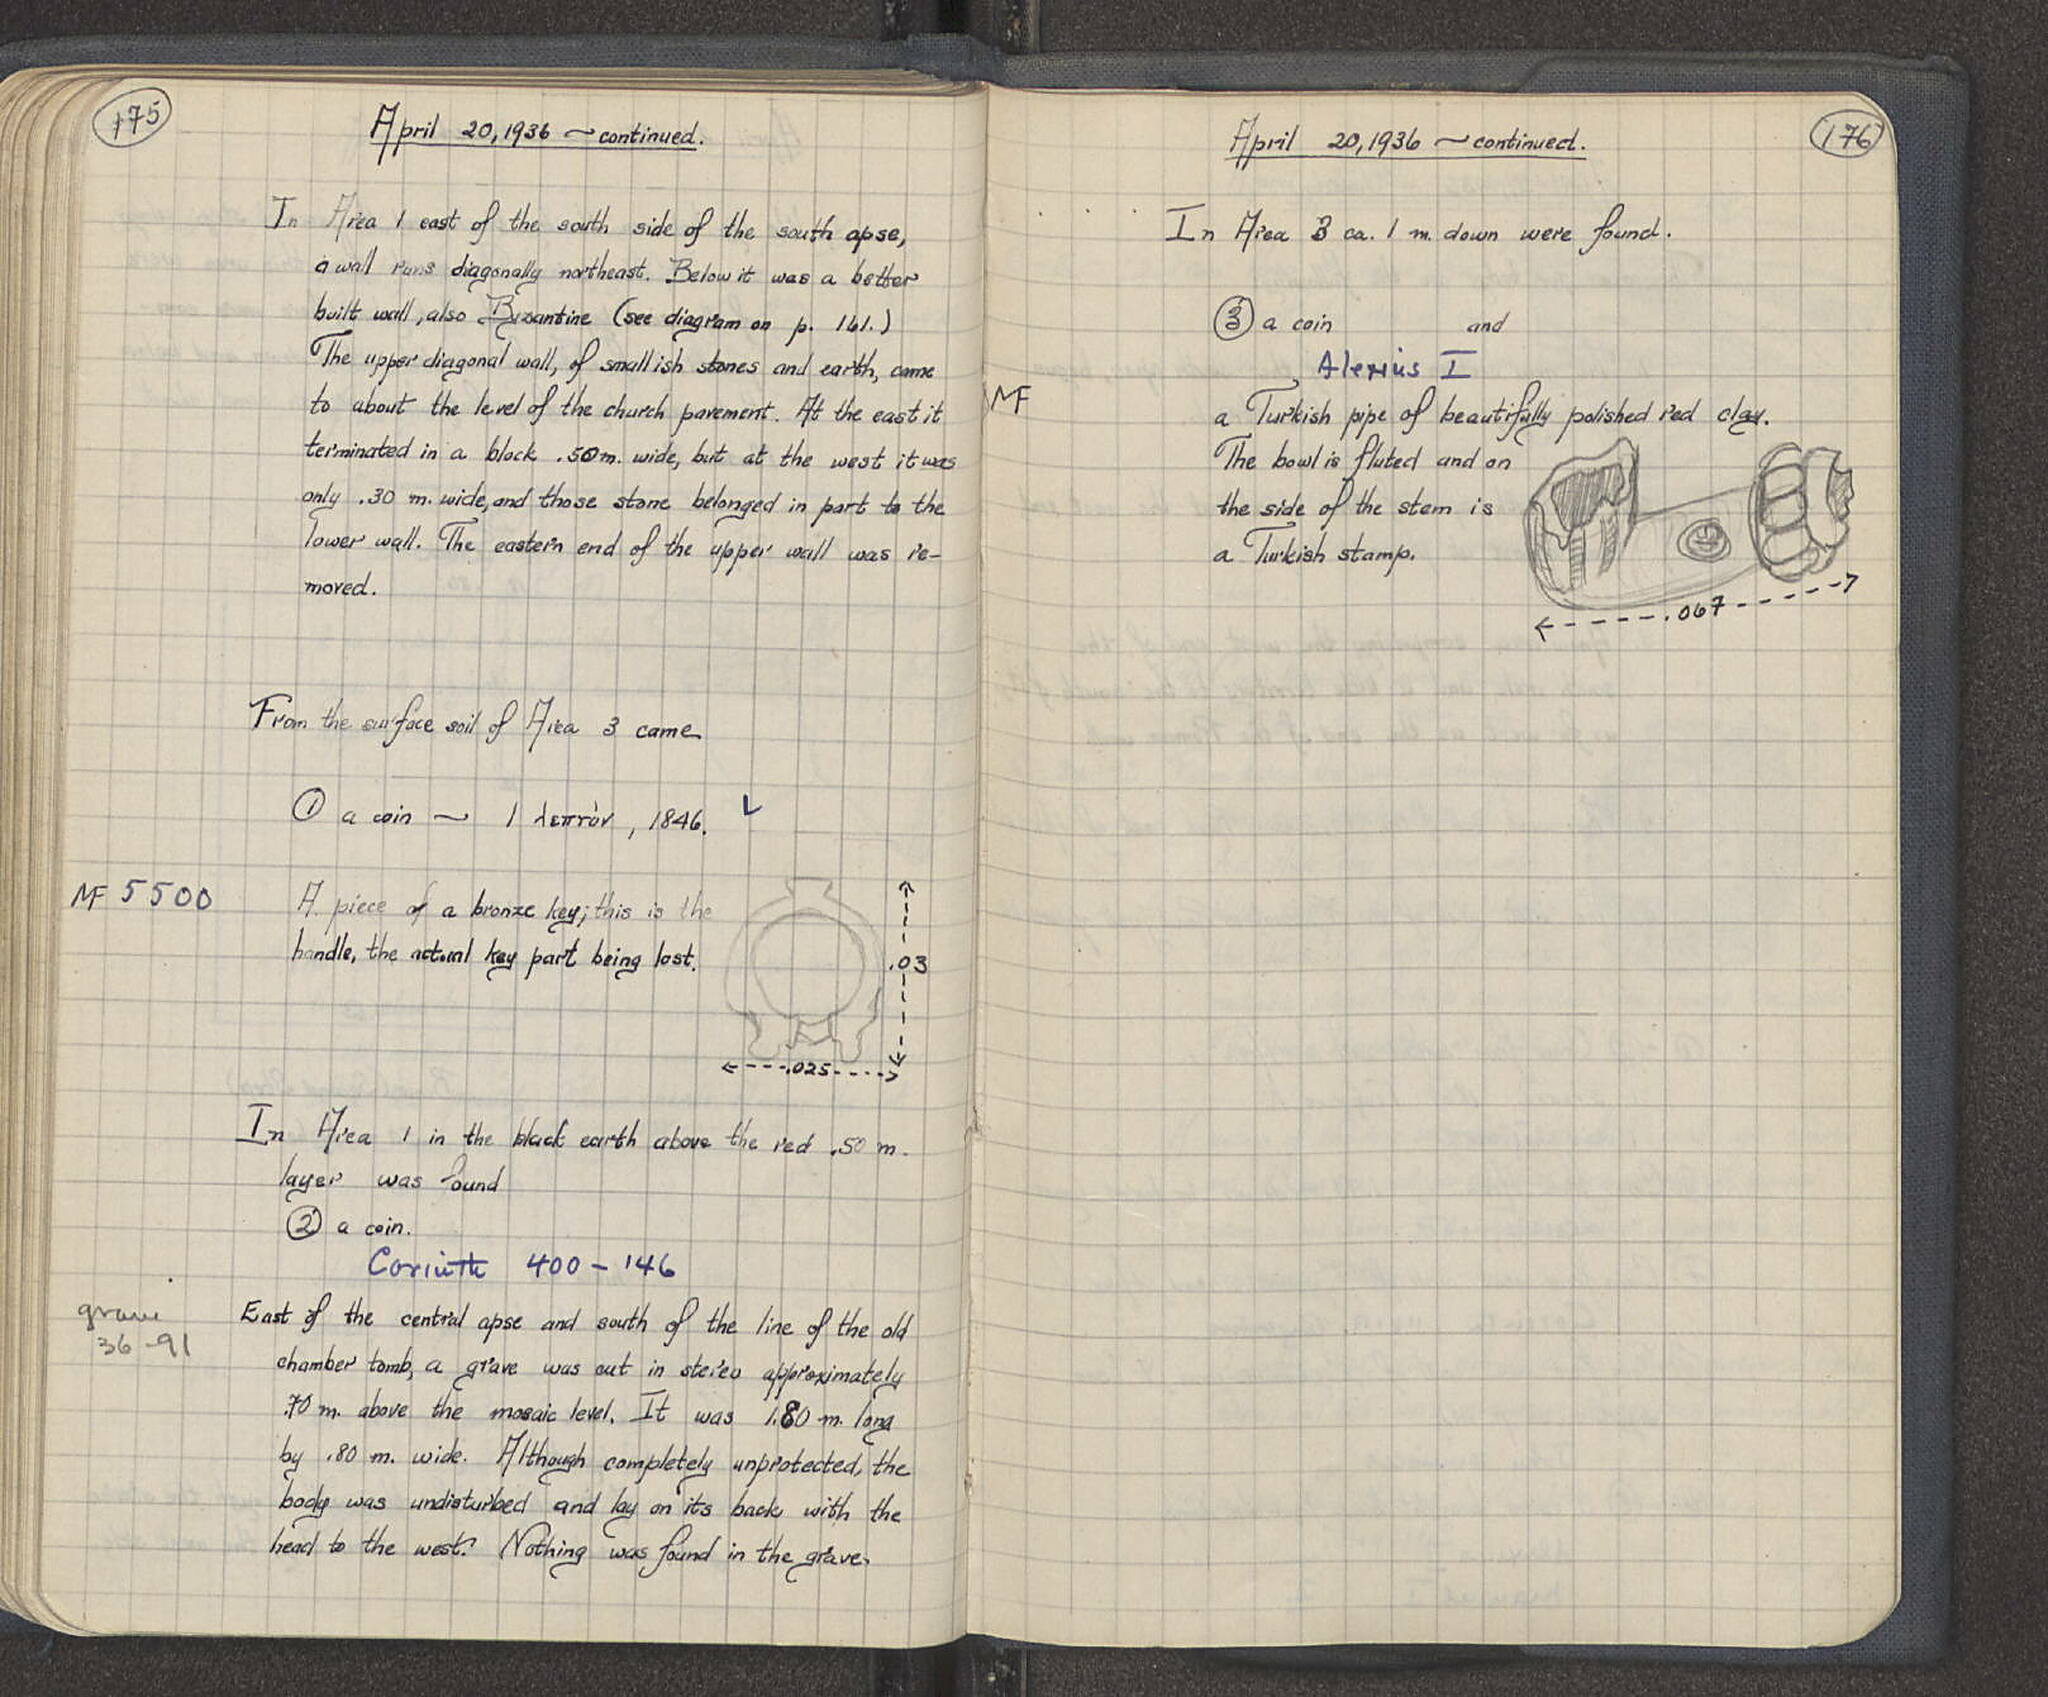 175
April 20, 1936 ~ continued.
In Area 1 east of the south side of the south apse,
a wall runs diagonally northeast. Below it was a better
built wall, also Byzantine (see diagram on p. 161.)
The upper diagonal wall, of smallish stones and earth, came
to about the level of the church pavement. At the east it
terminated in a block .50m. wide, but at the west it was
only .30 m. wide, and those stone belonged in part to the
lower wall. The eastern end of the upper wall was re-
moved.
From the surface soil of Area 3 came
① a coin ~ 1 λεπτὸν, 1846.
MF 5500
A piece of a bronze key; this is the
handle, the actual key part being lost.
.03
.025
In Area 1 in the black earth above the red .50 m.
layer was found
② a coin.
Corinth 400 - 146
grave
36-91
East of the central apse and south of the line of the old
chamber tomb, a grave was cut in stereo approximately
.70 m. above the mosaic level. It was 1.80 m. long
by .80 m. wide. Although completely unprotected, the
body was undisturbed and lay on its back with the
head to the west. Nothing was found in the grave.
176
April 20, 1936 ~ continued.
In Area 3 ca. 1 m. down were found.
③ a coin and
Alexius I
MF
a Turkish pipe of beautifully polished red clay.
The bowl is fluted and on
the side of the stem is
a Turkish stamp.
.067